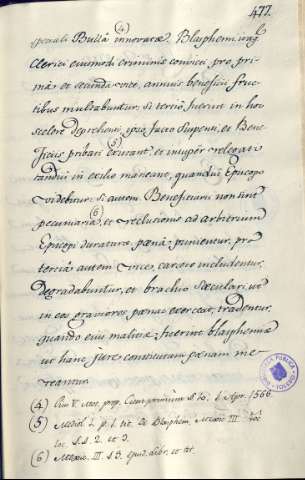 477.
(4)
speciali Bullâ innovatæ. Blasphemi, vag
Clerici eiusmodi criminis convicti pro pri
mâ et secunda vice, annuis beneficii fruc
tibus mulctabuntur; si tertiò fuerint in hoc
scelere deprehensi, ipso facto suspensi, et Bene
(5)
ficiis privati existant, et insuper relegati
tandiu in exilio maneant, quandiu Episcopo
videbitur: si autem Beneficiarii non sint
(6)
pecuniaria, et reclusione ad arbitrium
Episcopi duraturo pœnâ punientur, pro
tertia autem vice, carcere includentur,
degradabuntur, et brachio sæculari, ut
in eos graviores pœnas exerceat, tradentur,
quando eius malitiæ fuerint blasphemiæ
ut hanc jure constitutam pœnam me
reantur.
(4) Pius V. Mot. prop. Cum primum S. 10. 1. Apr. 1566.
(5) Mediol. 1. p. 1. tit. De Blasphem. Mexic. III.
S. S. 2. et 3.
(6) Mexic. III. S. 3. ejusd. libr. et tit.